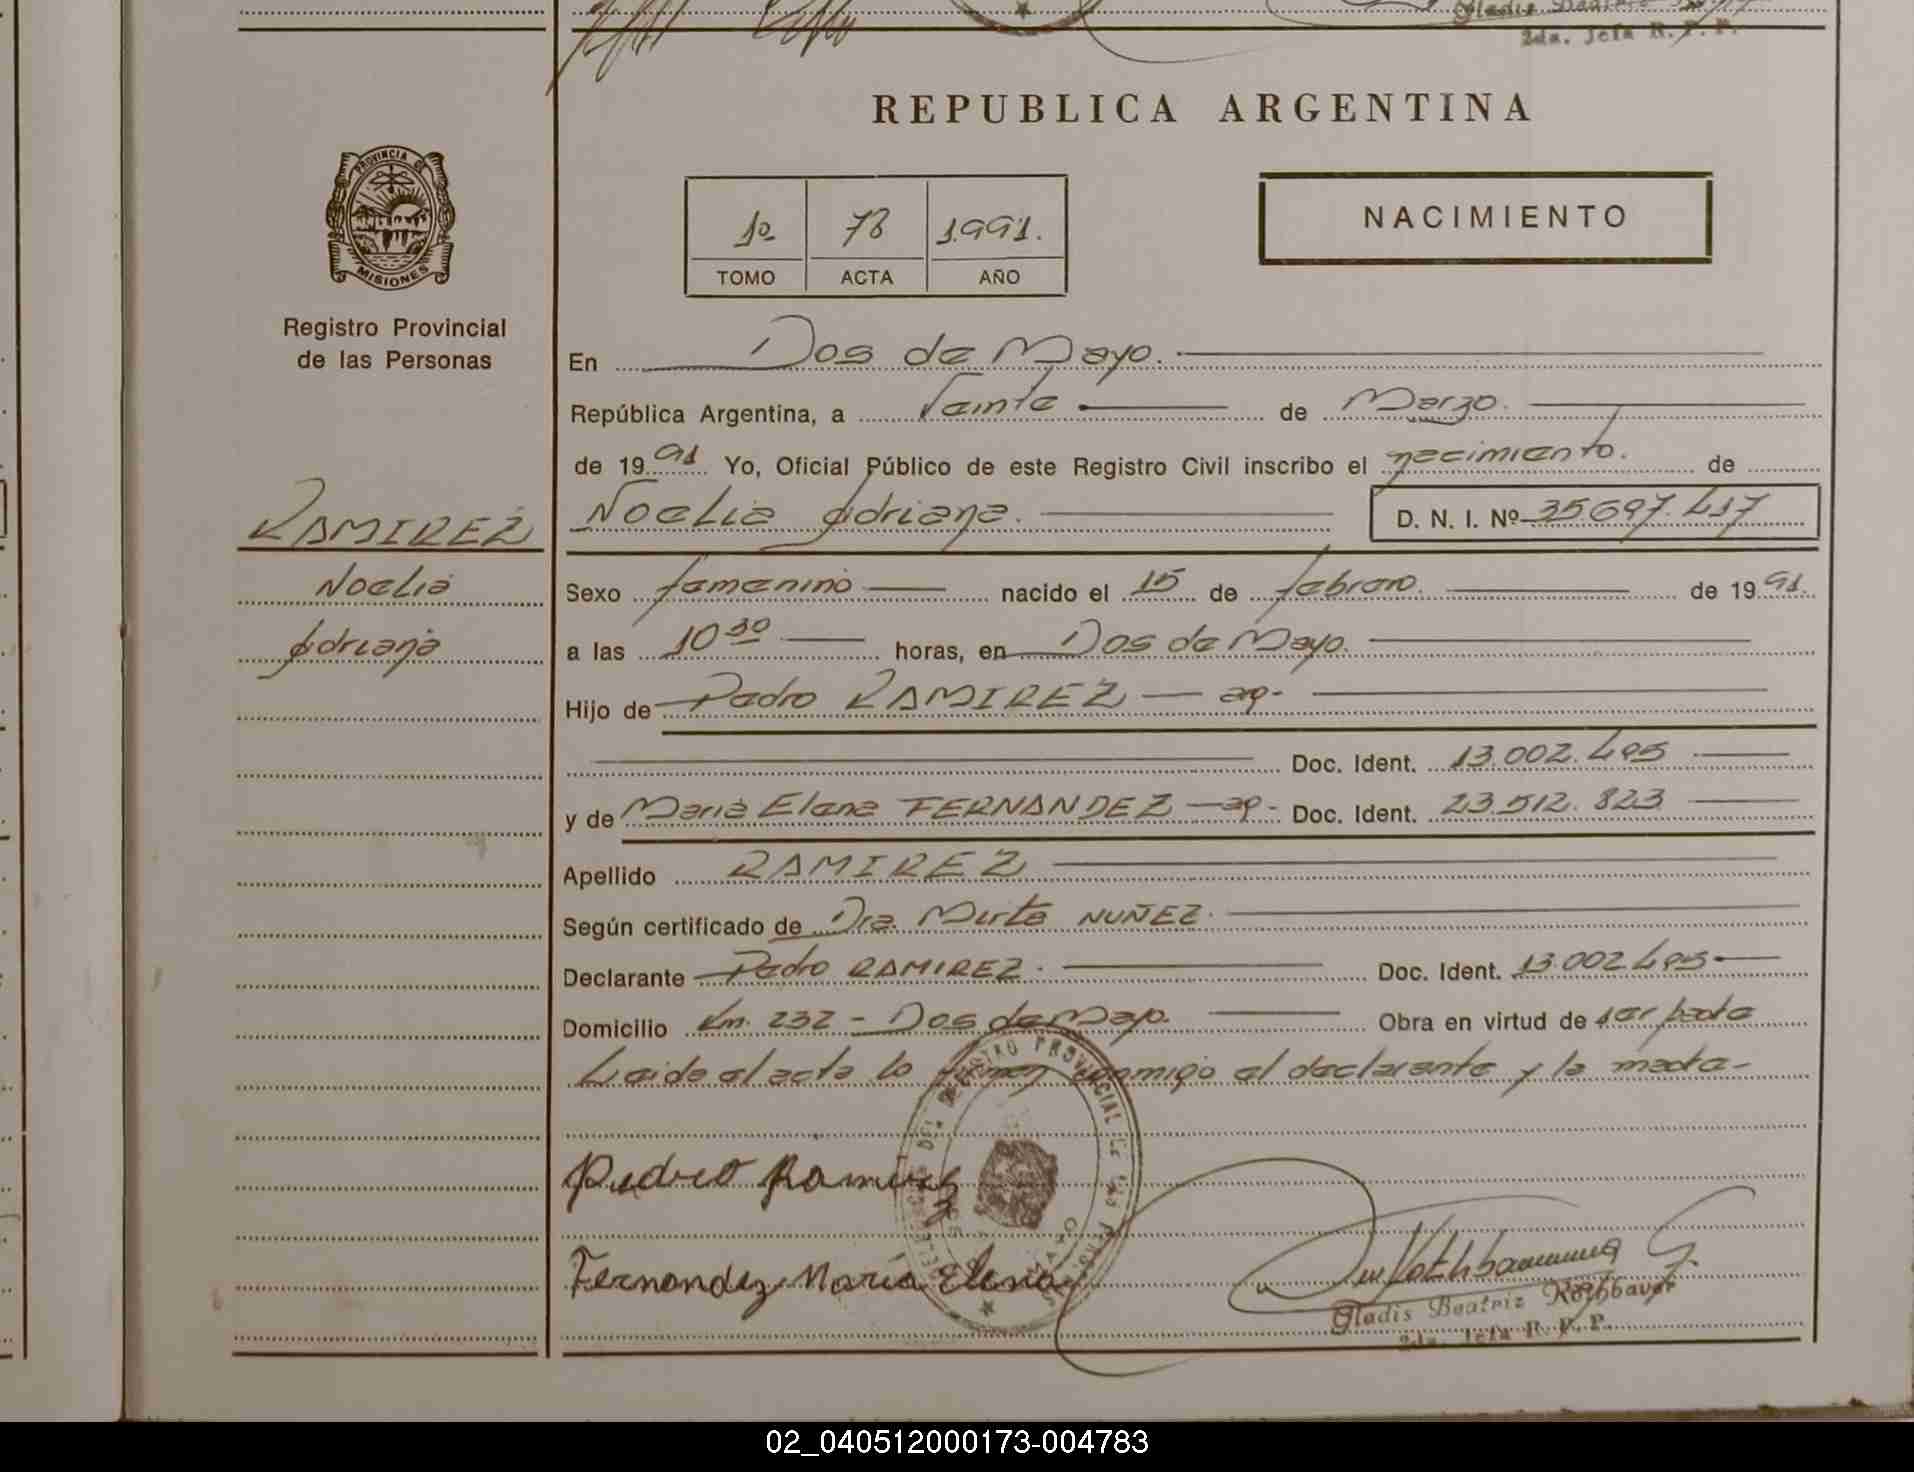 Gladis Beatriz
2da. Jefa R. P. P.
REPUBLICA ARGENTINA
PROVINCIA DE
MISIONES
Registro Provincial
de las Personas
1º 78 1.991.
TOMO ACTA AÑO
NACIMIENTO
En Dos de Mayo.
República Argentina, a Veinte de Marzo.
de 1991 Yo, Oficial Público de este Registro Civil inscribo el nacimiento. de
Noelia Adriana. D. N. I. Nº 35697.417
RAMIREZ
Noelia
Adriana
Sexo femenino nacido el 15 de febrero. de 1991.
a las 10 30 horas, en Dos de Mayo.
Hijo de Pedro RAMIREZ — ar-
Doc. Ident. 13.002.495
y de María Elena FERNANDEZ — ar- Doc. Ident. 23.512.823
Apellido RAMIREZ
Según certificado de Dra. Mirta NUÑEZ.
Declarante Pedro RAMIREZ. Doc. Ident. 13.002.495
Domicilio Km. 232 - Dos de Mayo. Obra en virtud de ser padre
Leida el acta lo firman conmigo el declarante y la madre-
Pedro Ramirez
Fernandez María Elena
Gladis Beatriz Rothbauer
2da. Jefa R. P. P.
02_040512000173-004783